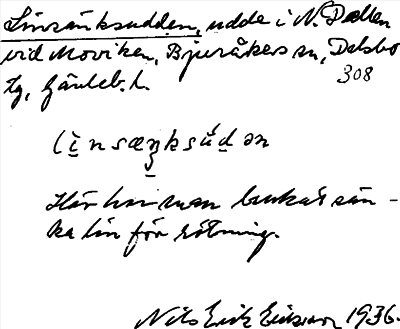 Linsänksudden, udde i N. Dellen
vid Moviken, Bjuråkers sn, Delsbo
tg, Gävleb. l. 308
lìnsæŋksúdən
Här har man brukat sän-
ka lin för rötning.
Nils Erik Eriksson 1936.